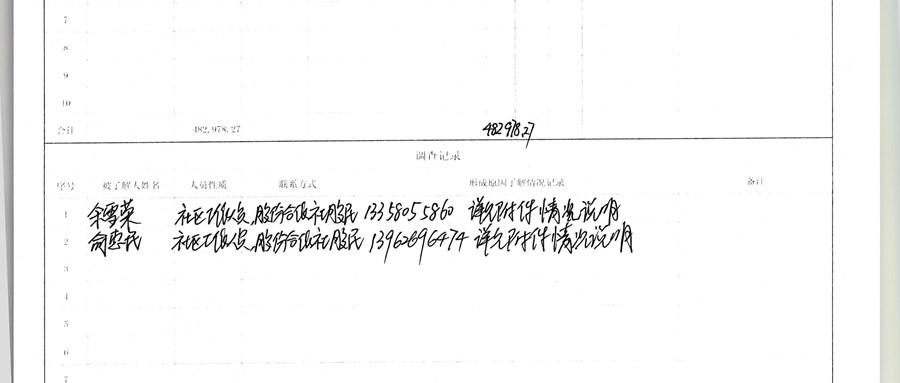 7
8
9
10
合计 482,978.27 482978.27
调查记录
序号 被了解人姓名 人员性质 联系方式 形成原因了解情况记录 备注
1 余雪荣 社区工作人员、股份合作社股民 13358055860 详见附件情况说明
2 俞惠民 社区工作人员、股份合作社股民 13962696474 详见附件情况说明
3
4
5
6
7